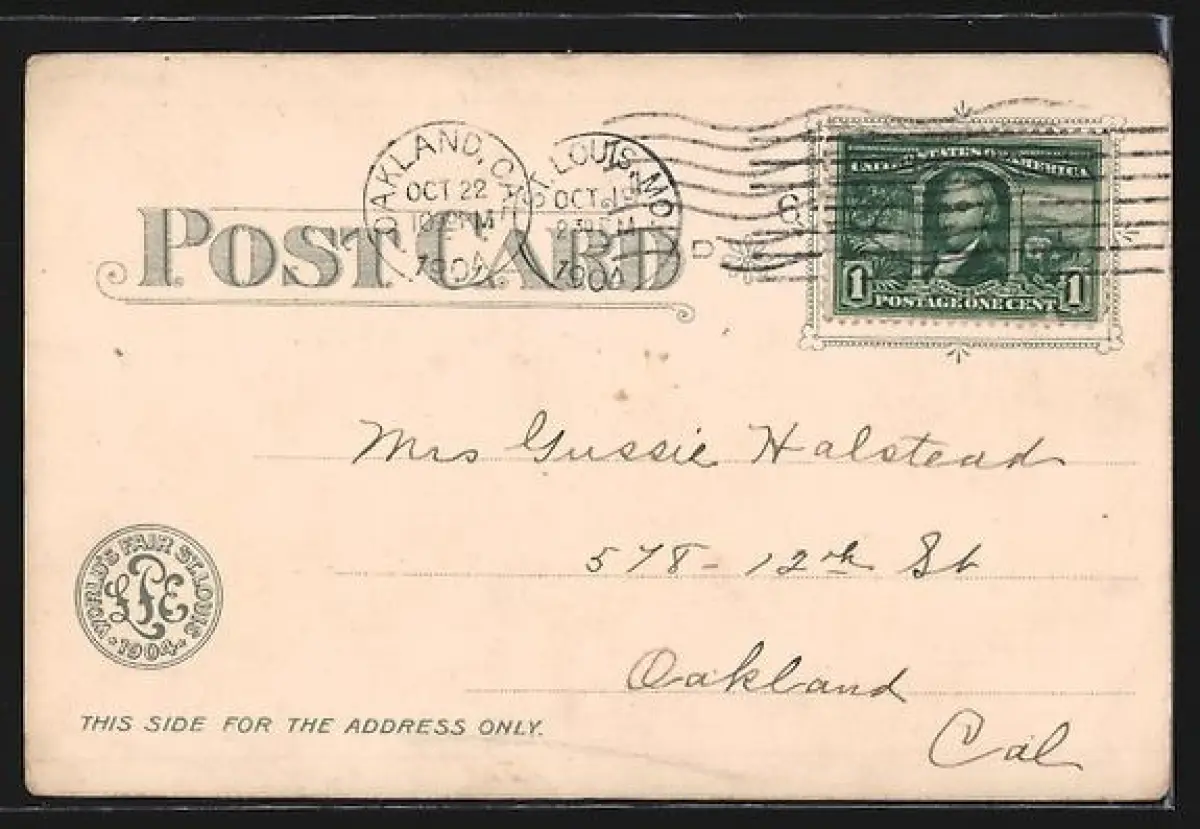 OAKLAND, CAL.
OCT 22
1904
ST. LOUIS, MO.
OCT 19
230 PM
1904
D
6
UNITED STATES OF AMERICA
1 POSTAGE ONE CENT 1
POST CARD
Mrs Gussie Halstead
578 - 12th St
Oakland
Cal
WORLD'S FAIR ST. LOUIS
LPE
1904
THIS SIDE FOR THE ADDRESS ONLY.